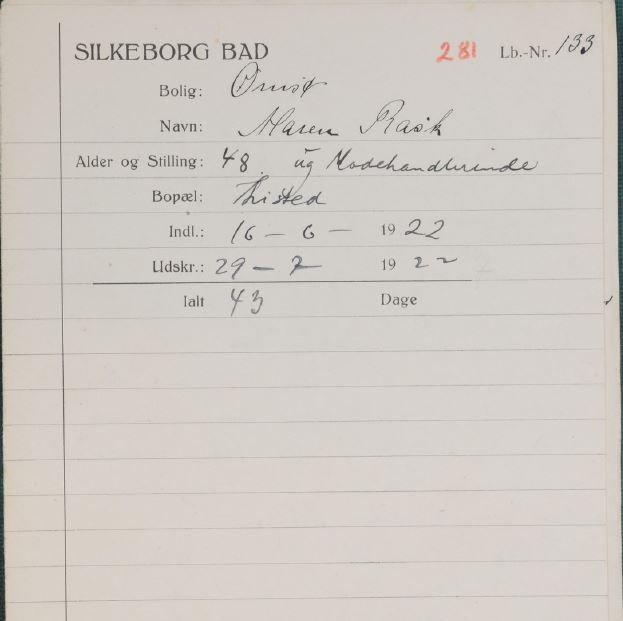 SILKEBORG BAD 281 Lb.-Nr. 133
Bolig: Ørnsø
Navn: Maren Rask
Alder og Stilling: 48 ug Modehandlerinde
Bopæl: Thisted
Indl.: 16 – 6 – 1922
Udskr.: 29 – 7 1922
Ialt 43 Dage